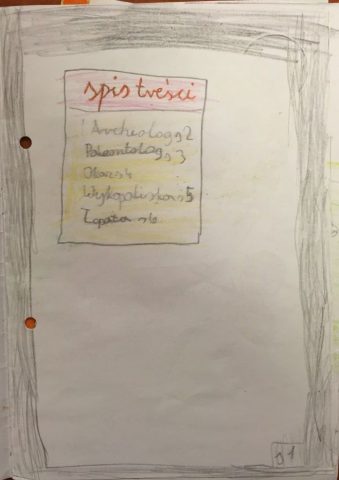 spis treści
Archeolog s2
Paleontolog s3
s4
Wykopaliska s5
Łopata s6
s1